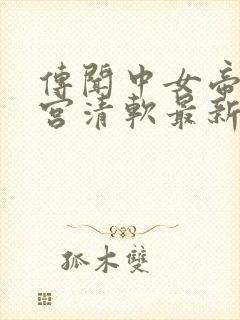 傳聞中女帝
宮清軟最新
孤木雙